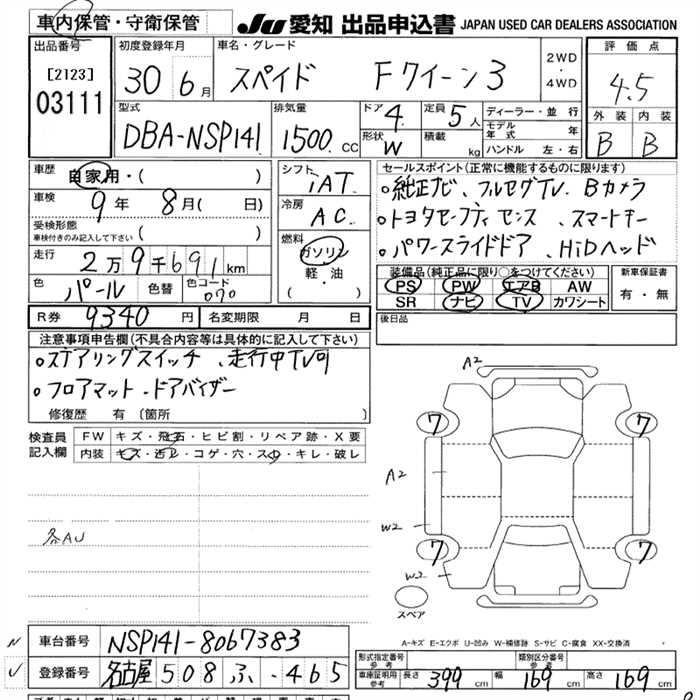 車内保管・守衛保管 JU 愛知 出品申込書 JAPAN USED CAR DEALERS ASSOCIATION
出品番号 初度登録年月 車名・グレード 2WD ・ 4WD 評価点
[2123] 30年 6月 スペイド Fクイーン3 4.5
03111 型式 排気量 ドア 4 定員 5人 ディーラー・並行 外装 内装
DBA-NSP141 1500 CC 形状 W 積載 kg モデル年式 年 B B
ハンドル 左・右
車歴 自家用・( ) シフト iAT セールスポイント(正常に機能するものに限ります)
車検 9年 8月( 日) 冷房 AC 純正ナビ、フルセグTV、Bカメラ
受検形態 車検付きのみ記入して下さい ( ) トヨタセーフティセンス、スマートキー
走行 2万9千691km 燃料 ガソリン 軽・油 ( ) パワースライドドア、HiDヘッド
色 パール 色替 色コード 070 装備品(純正品に限り○をつけてください) 新車保証書
PS PW エアB AW 有・無
SR ナビ TV カワシート
R券 9340円 名変期限 月 日 後日品
注意事項申告欄(不具合内容等は具体的に記入して下さい)
ステアリングスイッチ、走行中TV可
フロアマット、ドアバイザー
修復歴 有 〔箇所 〕
検査員記入欄 FW キズ・飛石・ヒビ割・リペア跡・X要
内装 キズ・汚レ・コゲ・穴・スレ・キレ・破レ
A2
7 7
A2
W2
7 7
W2
スペア
各AU
A-キズ E-エクボ U-凹み W-補修跡 S-サビ C-腐食 XX-交換済
車台番号 NSP141-8067383
登録番号 名古屋 508 ふ -465
形式指定番号 参考 類別区分番号 参考
車庫証明用 参考 長さ 399cm 幅 169cm 高さ 169cm